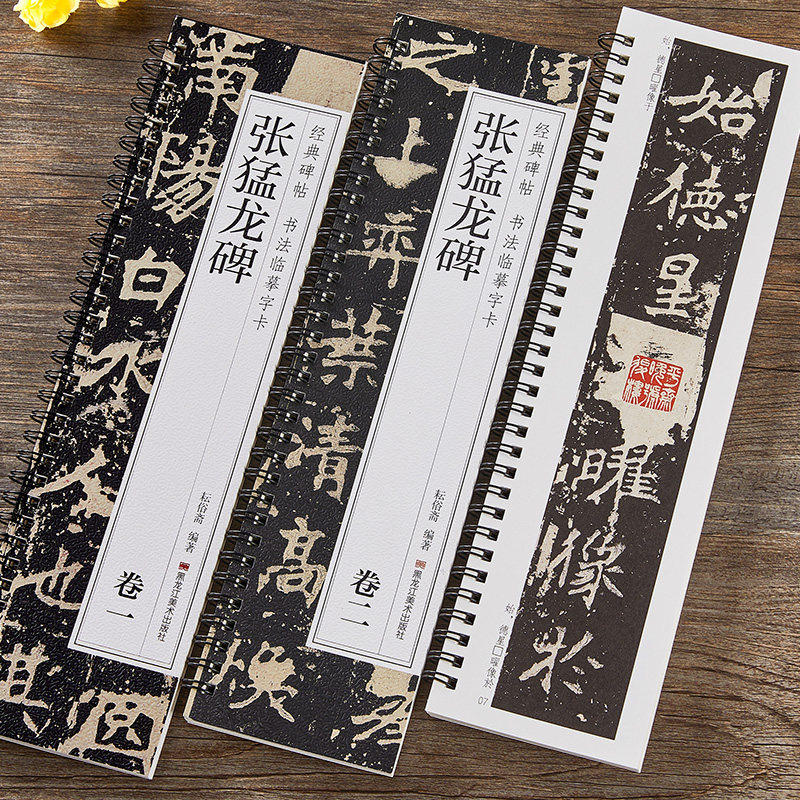 南陽白水人也其
经典碑帖 书法临摹字卡
张猛龙碑
耘俗斋 编著
卷一
之上弈葉清高
经典碑帖 书法临摹字卡
张猛龙碑
耘俗斋 编著
黑龙江美术出版社
卷二
始，德星□曜像于
始德星
曜像於
始，德星□曜像於
07